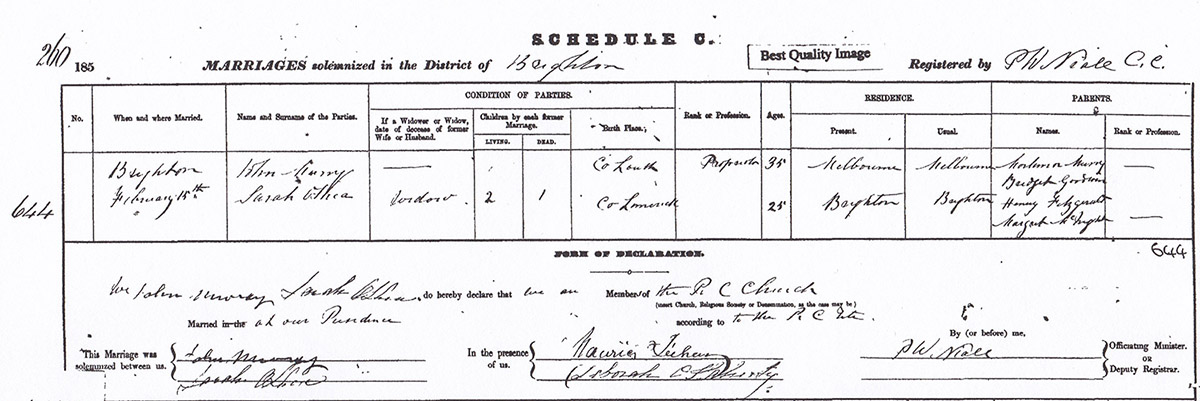 SCHEDULE C.
260 185 MARRIAGES solemnized in the District of Brighton Best Quality Image Registered by P W Niall C.C.
CONDITION OF PARTIES. RESIDENCE. PARENTS.
No. When and where Married. Name and Surname of the Parties. If a Widower or Widow, date of decease of former Wife or Husband. Children by each former Marriage. LIVING. DEAD. Birth Place. Rank or Profession. Ages. Present. Usual. Names. Rank or Profession.
Brighton John Murry — Co Louth 35 Melbourne Melbourne Murry —
Bridget
644 February 15th Sarah widow 2 1 Co Limerick 25 Brighton Brighton Henry Fitzgerald
Margaret —
644
FORM OF DECLARATION.
We John Murray Sarah do hereby declare that we are Members of the R C Church
(insert Church, Religious Society or Denomination, as the case may be)
Married in the at our Residence according to the R C
By (or before) me,
This Marriage was solemnized between us. John Murry In the presence of us. Maurice P W Niall Officiating Minister. OR Deputy Registrar.
Sarah Deborah